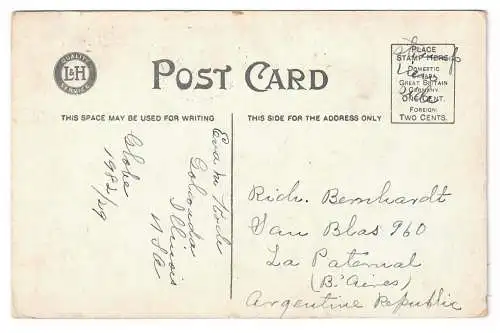 QUALITY
L&H
SERVICE
POST CARD
PLACE
STAMP HERE
DOMESTIC
GREAT BRITAIN
GERMANY
ONE CENT.
FOREIGN
TWO CENTS.
THIS SPACE MAY BE USED FOR WRITING
THIS SIDE FOR THE ADDRESS ONLY
Eva M
Golconda
Illinois
USA
Globe
1982/29
Rich. Bernhardt
San Blas 960
La Paternal
(Bs Aires)
Argentine Republic